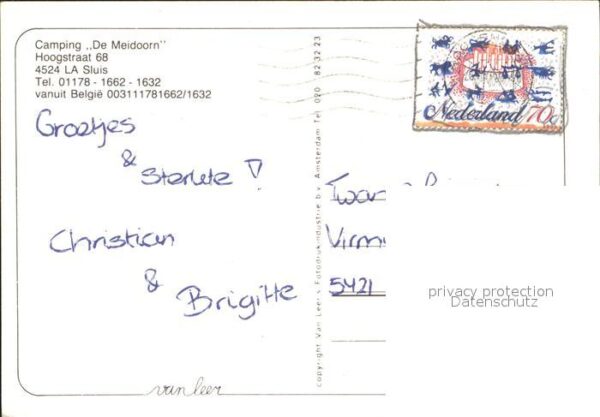 Camping „De Meidoorn"
Hoogstraat 68
4524 LA Sluis
Tel. 01178 - 1662 - 1632
vanuit België 003111781662/1632
Nederland 70c
Groetjes
&
Sterkte !
Christian
&
Brigitte
Virm
5421
copyright Van Leer's Fotodrukindustrie b.v. Amsterdam Tel. 020 - 82 32 23
van leer
privacy protection
Datenschutz